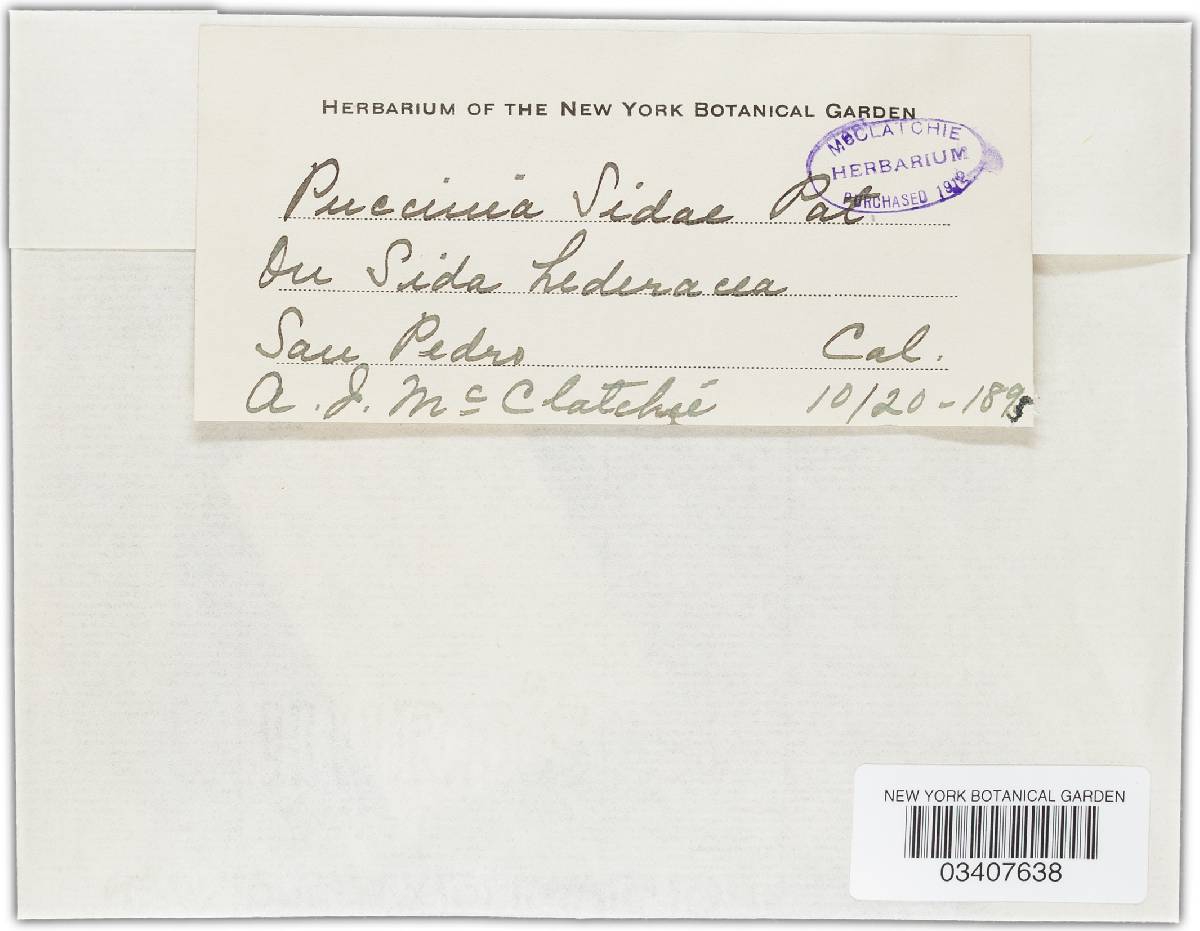 HERBARIUM OF THE NEW YORK BOTANICAL GARDEN
McCLATCHIE
HERBARIUM
PURCHASED 1912
Puccinia Sidae Pat
On Sida hederacea
San Pedro Cal.
A. J. Mc Clatchie 10/20-1895
NEW YORK BOTANICAL GARDEN
03407638